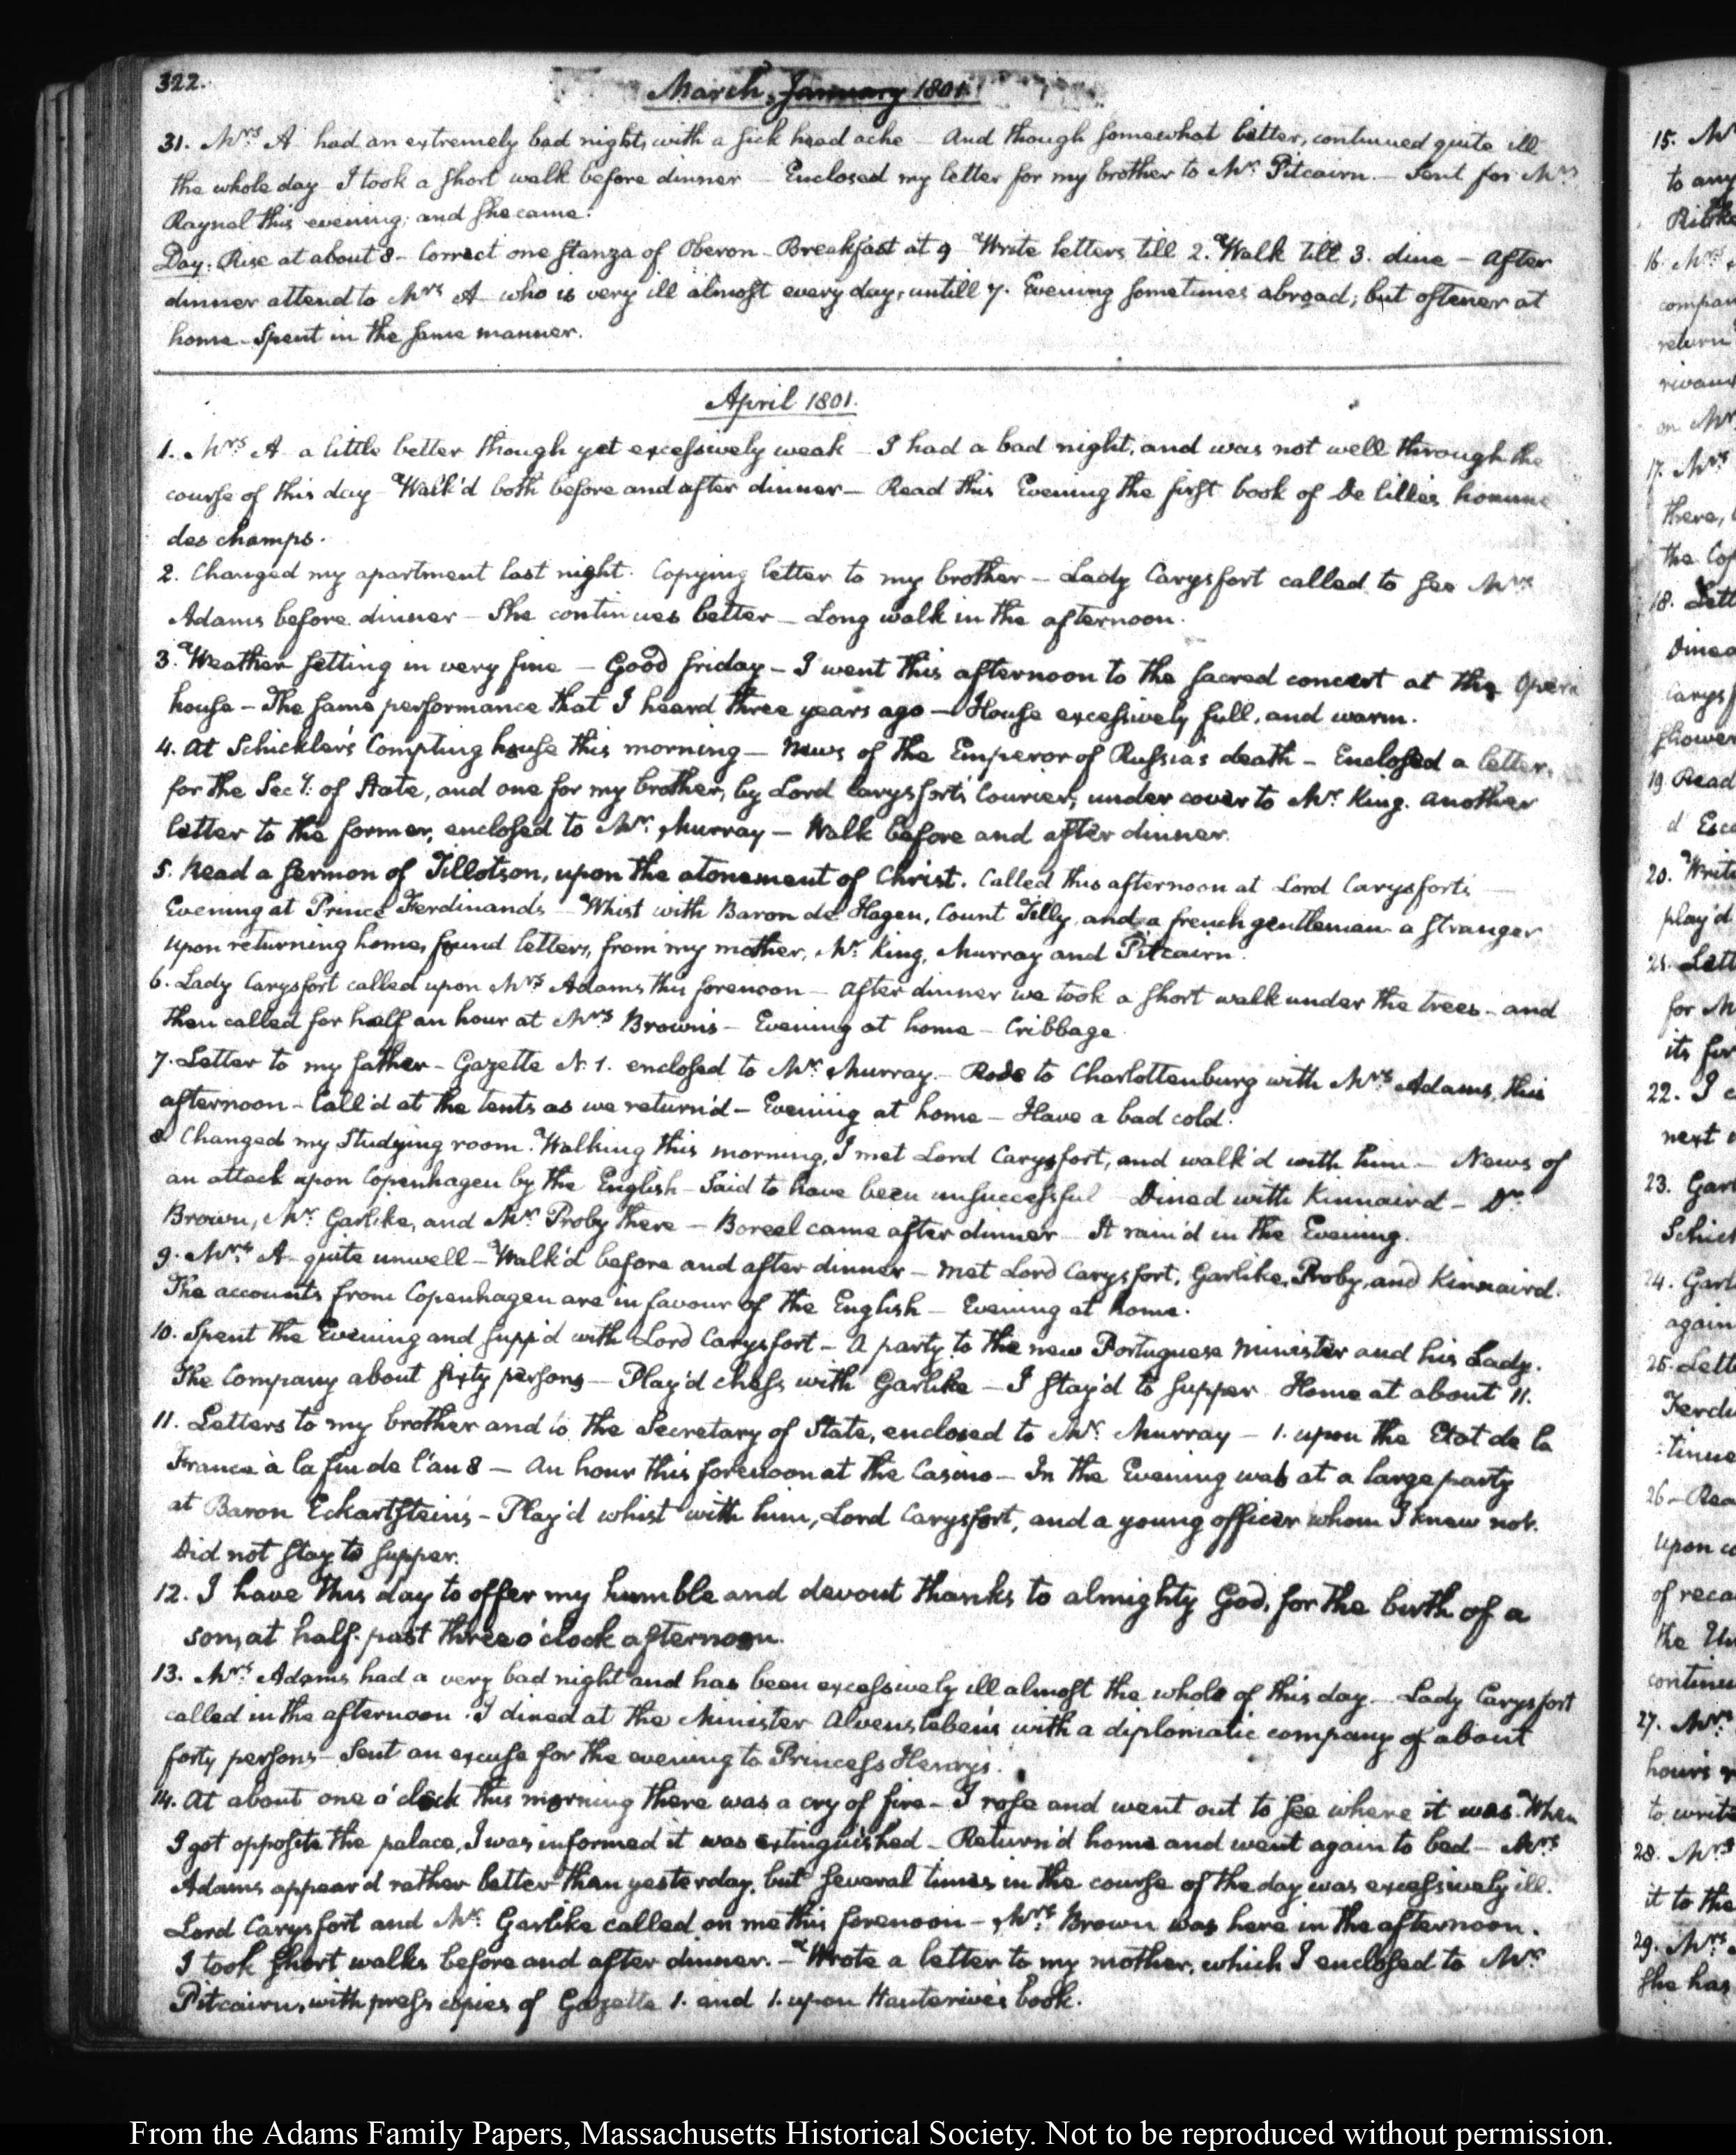 322.
March, January 1801.
31. Mrs A had an extremely bad night, with a sick head ache — And though somewhat better, continued quite ill
the whole day — I took a short walk before dinner — Enclosed my letter for my brother to Mr Pitcairn. — Sent for Mrs
Raynal this evening; and she came.
Day: Rise at about 8 — Correct one stanza of Oberon — Breakfast at 9 — Write letters till 2. Walk till 3. dine — After
dinner attend to Mrs A — who is very ill almost every day, untill 7. Evening sometimes abroad; but oftener at
home — Spent in the same manner.
April 1801.
1. Mrs A a little better though yet excessively weak — I had a bad night, and was not well through the
course of this day — Walk'd both before and after dinner — Read this Evening the first book of De lilles homme
des champs.
2. Changed my apartment last night. Copying letter to my brother — Lady Carysfort called to see Mrs
Adams before dinner — She continues better — Long walk in the afternoon.
3. Weather setting in very fine — Good friday — I went this afternoon to the sacred concert at the Opera
house — The same performance that I heard three years ago — House excessively full, and warm.
4. At Schickler's Compting house this morning — News of the Emperor of Russia's death — Enclosed a letter,
for the Secy. of State, and one for my brother, by Lord Carysfort's Courier, under cover to Mr King. Another
letter to the former, enclosed to Mr. Murray — Walk before and after dinner.
5. Read a sermon of Tillotson, upon the atonement of Christ. Called this afternoon at Lord Carysforts —
Evening at Prince Ferdinand's — Whist with Baron de Hagen, Count Tilly, and a french gentleman a stranger
Upon returning home, found letters, from my mother, Mr. King, Murray and Pitcairn.
6. Lady Carysfort called upon Mrs Adams this forenoon — After dinner we took a short walk under the trees — and
then called for half an hour at Mrs Brown's — Evening at home — Cribbage
7. Letter to my father — Gazette N. 1. enclosed to Mr. Murray. — Rode to Charlottenburg with Mrs Adams, this
afternoon — Call'd at the tents as we return'd — Evening at home — Have a bad cold.
8. Changed my Studying room. Walking this morning, I met Lord Carysfort, and walk'd with him — News of
an attack upon Copenhagen by the English — Said to have been unsuccessful — Dined with Kinnaird — Dr
Brown, Mr. Garlike, and Mr. Proby there — Boreel came after dinner — It rain'd in the Evening.
9. Mrs A quite unwell — Walk'd before and after dinner — Met Lord Carysfort, Garlike, Proby, and Kinnaird.
The accounts from Copenhagen are in favour of the English — Evening at home.
10. Spent the Evening and supp'd with Lord Carysfort — A party to the new Portuguese Minister and his Lady.
The Company about sixty persons — Play'd chess with Garlike — I stay'd to supper. Home at about 11.
11. Letters to my brother and to the Secretary of State, enclosed to Mr. Murray — 1. upon the Etat de la
France à la fin de l'an 8 — An hour this forenoon at the Casino — In the Evening was at a large party
at Baron Eckartstein's — Play'd whist with him, Lord Carysfort, and a young officer whom I knew not.
Did not stay to supper.
12. I have this day to offer my humble and devout thanks to almighty God, for the birth of a
son, at half-past three o'clock afternoon.
13. Mrs Adams had a very bad night and has been excessively ill almost the whole of this day — Lady Carysfort
called in the afternoon. I dined at the Minister Alvensleben's with a diplomatic company of about
forty persons — Sent an excuse for the evening to Princess Henry's.
14. At about one o'clock this morning there was a cry of fire — I rose and went out to see where it was. When
I got opposite the palace, I was informed it was extinguished — Return'd home and went again to bed — Mrs
Adams appear'd rather better than yesterday, but several times in the course of the day was excessively ill.
Lord Carysfort and Mr. Garlike called on me this forenoon — Mrs Brown was here in the afternoon.
I took short walks before and after dinner. — Wrote a letter to my mother, which I enclosed to Mr
Pitcairn, with press copies of Gazette 1. and 1. upon Hauterive's book.
15. M
to any
16. Mrs
compan
return
on Mr
17. Mrs
there,
the Cop
18. Lett
Dined
Carysf
shower
19. Read
20. Write
play'd
21. Lett
for M
its for
22. I c
next
23. Garl
Schick
24. Garl
again
25. Lett
Ferdi
tinue
26 — Rea
upon co
of reca
the Un
continu
27. Mrs
hours
to write
28. Mrs
it to the
29. Mrs
she has
From the Adams Family Papers, Massachusetts Historical Society. Not to be reproduced without permission.